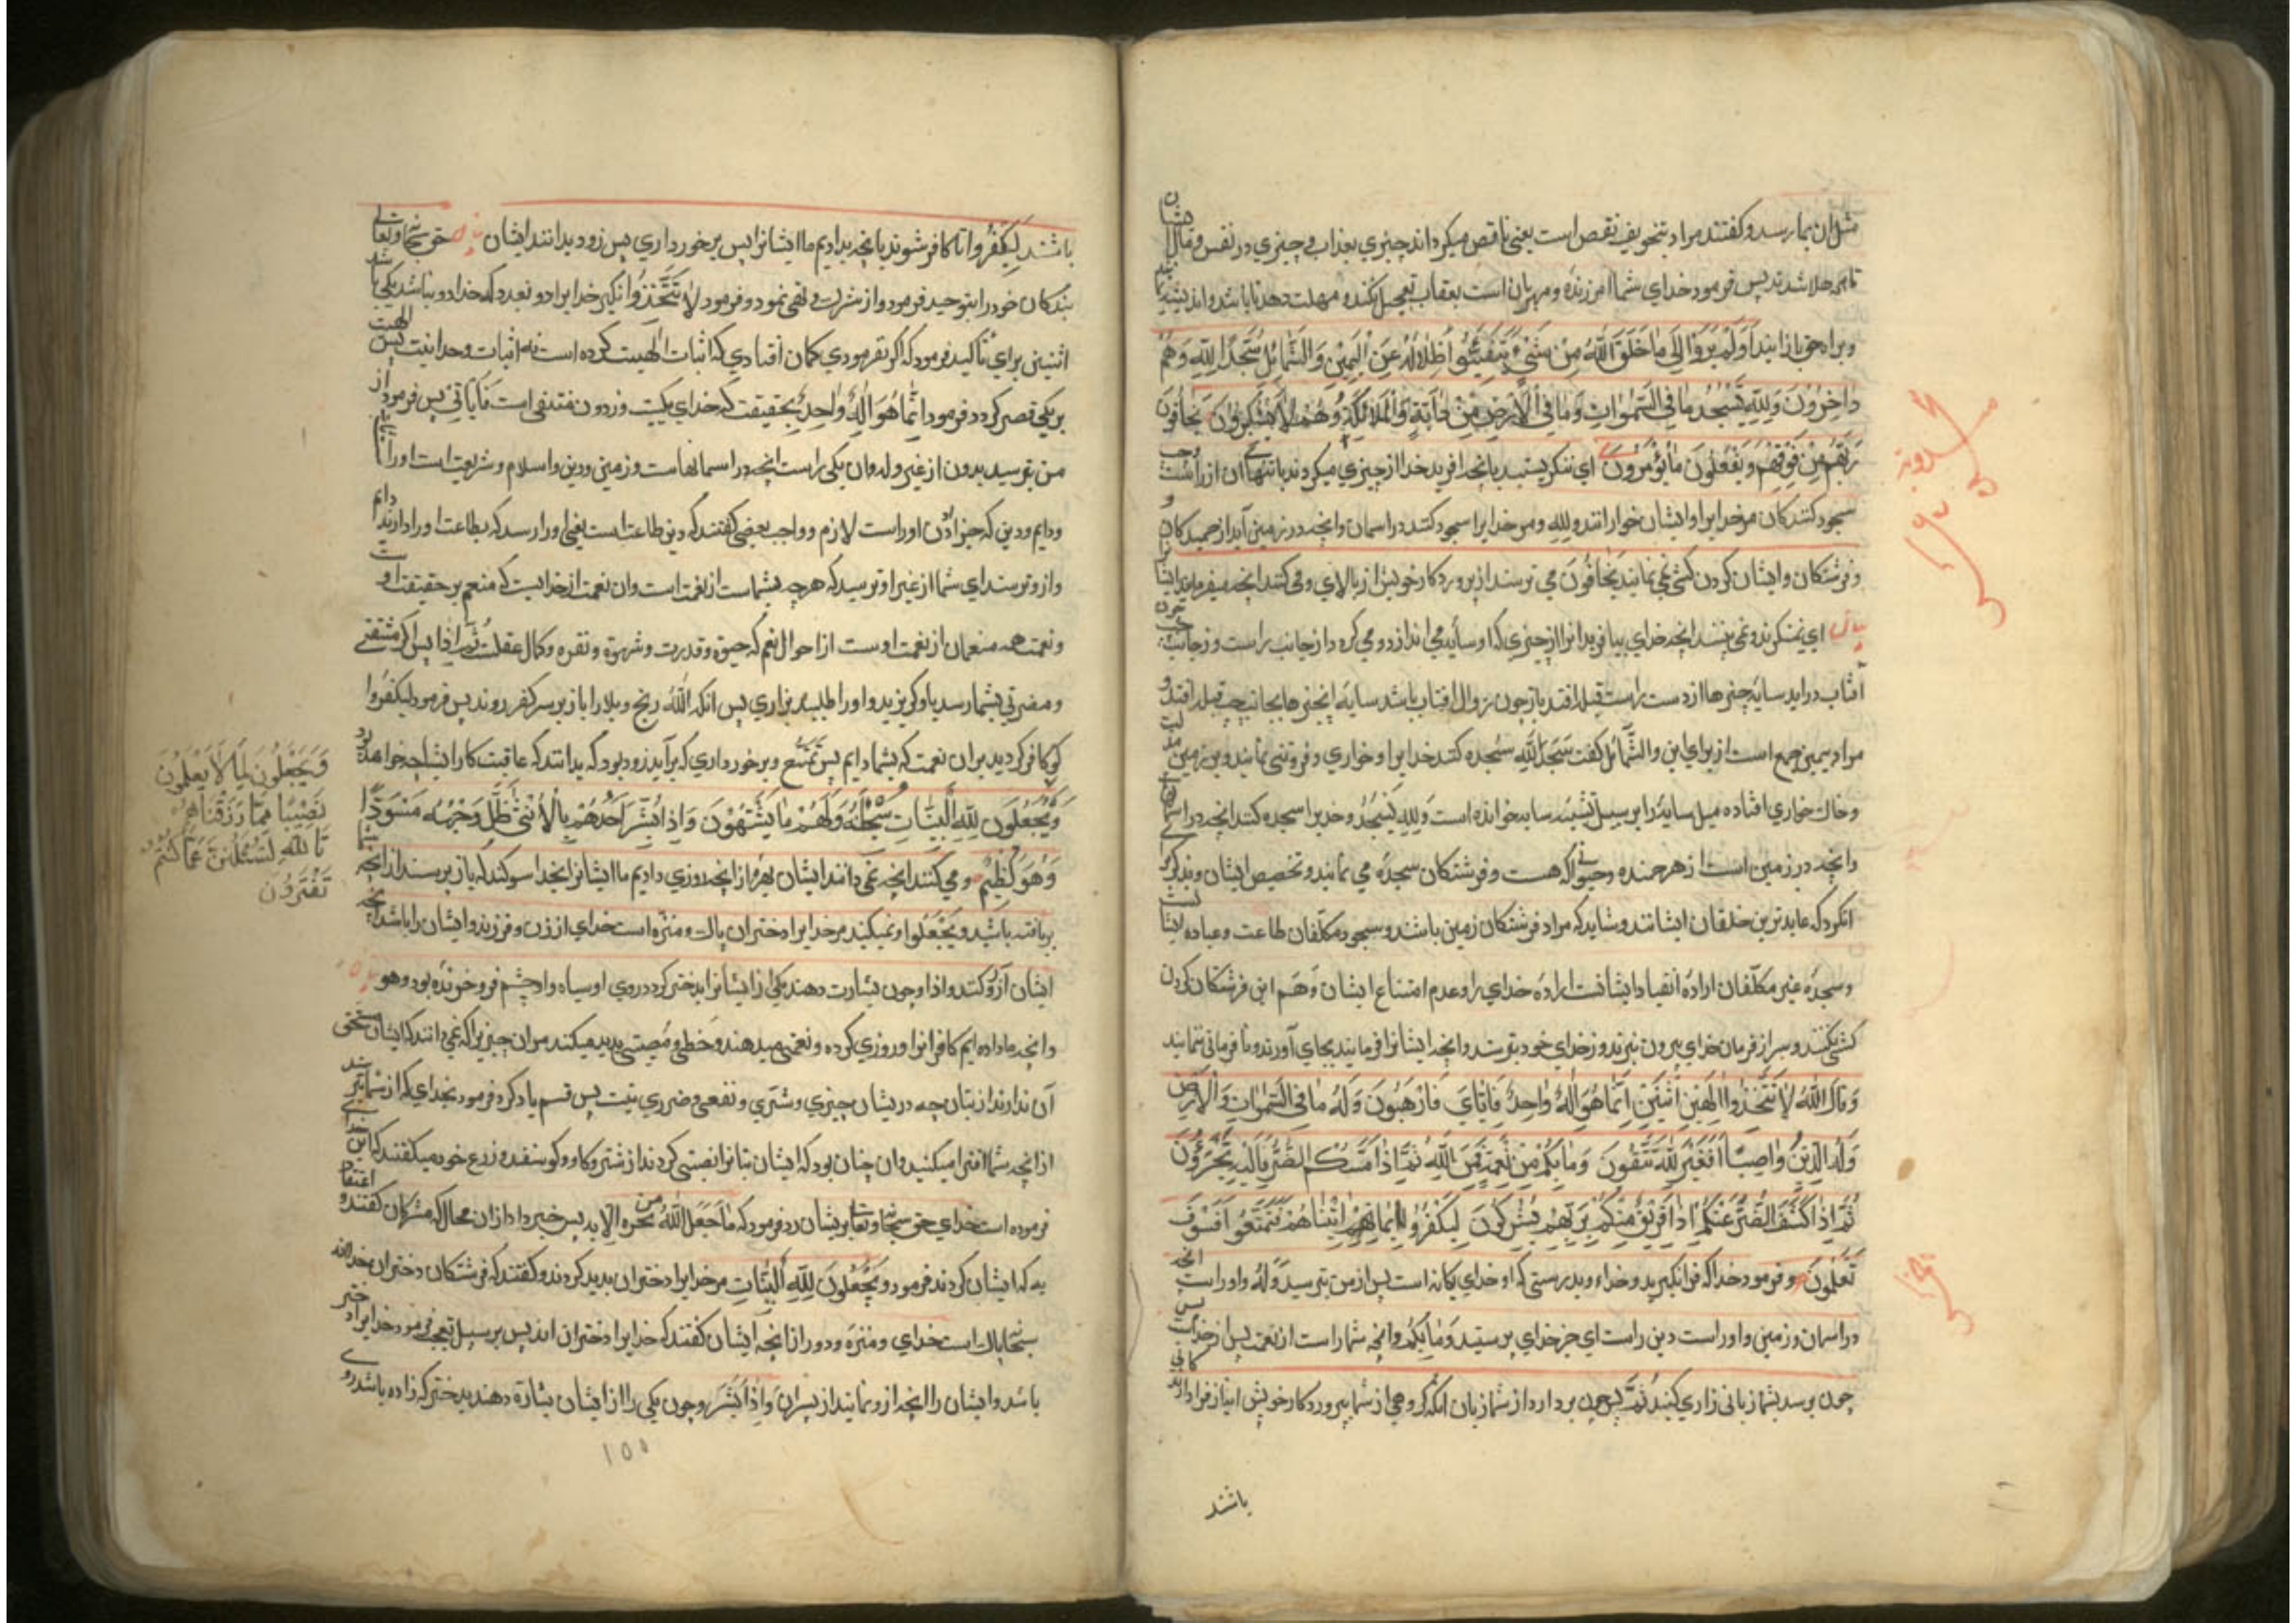 مثل ان بما رسد و کفتند مراد بتخویف نقص است یعنی ناقص میکرداند چیزی بعذاب و چیزی در نفس و مال ایشان
تا همه هلاک شدند پس فرمود خدای شما امرزنده و مهربان است بعقاب تعجیل نکند و مهلت دهد تا باشد و اندیشه نمایند
و براه حق باز ایند اَوَلَمْ یَرَوْا اِلٰی مٰا خَلَقَ اللّٰهُ مِنْ شَیْءٍ یَتَفَیَّئُوا ظِلٰالُهُ عَنِ الْیَمِیْنِ وَالشَّمٰائِلِ سُجَّدًا لِلّٰهِ وَهُمْ
دٰاخِرُوْنَ وَلِلّٰهِ یَسْجُدُ مٰا فِی السَّمٰوٰاتِ وَمٰا فِی الْاَرْضِ مِنْ دٰابَّةٍ وَالْمَلٰائِکَةُ وَهُمْ لٰا یَسْتَکْبِرُوْنَ یَخٰافُوْنَ
رَبَّهُمْ مِنْ فَوْقِهِمْ وَیَفْعَلُوْنَ مٰا یُؤْمَرُوْنَ ای ننکریستید بانچه افرید خدا از چیزی میکردند سایهای ان از راست
سجود کنندکان مر خدایرا و ایشان خوارانند و لله و مر خدایرا سجود کنند در اسمان و انچه در زمین آید از جمبندکان
و فرشتکان و ایشان کردن کشی نمی نمایند یَخٰافُوْنَ می ترسند از پروردکار خویش از بالای و می کنند انچه میفرماید ایشانرا
بیان ای نمی نکرند و نمی بینند انچه خدای بیافرید انرا از چیزی که او سایه می اندازد و می کردد از جانب راست و از جانب چپ چون
آفتاب دراید سایه چیزها از دست راست قبله افتد باز چون زوال افتاب باشد سایه انچیزها بجانب چپ قبله افتد و
مراد بیمین جمع است از برای این والشَّمٰائل کفت سُجَّدًا لِلّٰهِ سجده کنند خدایرا و خواری و فروتنی نمایند و بر زمین
و خاک خواری افتاده میل سایه را بر سبیل تشبیه ساجد خوانده است وَلِلّٰهِ یَسْجُدُ و خدیرا سجده کنند انچه در اسمانها
وانچه در زمین است از هر جمنده و حیوانی که هست و فرشتکان سجده می نمایند و تخصیص ایشان و بذکر
انکردکه عابدترین خلقان ایشانند و شاید که مراد فرشتکان زمین باشند و سجود مکلّفان طاعت و عباده ایشانست
و سجده غیر مکلّفان اراده انقیاد ایشانست اراده خدای را و عدم امتناع ایشان وَهُم این فرشتکان کردن
کشی نکنند و سر از فرمان خدای بیرون نبرند و از خدای خود بترسند و انچه ایشانرا فرمایند بجای آورند و نا فرمانی ننمایند
وَقٰالَ اللّٰهُ لٰا تَتَّخِذُوا اِلٰهَیْنِ اثْنَیْنِ اِنَّمٰا هُوَ اِلٰهٌ وٰاحِدٌ فَاِیّٰایَ فَارْهَبُوْنَ وَلَهُ مٰا فِی السَّمٰوٰاتِ وَالْاَرْضِ
وَلَهُ الدِّیْنُ وٰاصِبًا اَفَغَیْرَ اللّٰهِ تَتَّقُوْنَ وَمٰا بِکُمْ مِنْ نِعْمَةٍ فَمِنَ اللّٰهِ ثُمَّ اِذٰا مَسَّکُمُ الضُّرُّ فَاِلَیْهِ تَجْئَرُوْنَ
ثُمَّ اِذٰا کَشَفَ الضُّرَّ عَنْکُمْ اِذٰا فَرِیْقٌ مِنْکُمْ بِرَبِّهِمْ یُشْرِکُوْنَ لِیَکْفُرُوا بِمٰا اٰتَیْنٰاهُمْ فَتَمَتَّعُوْا فَسَوْفَ
تَعْلَمُوْنَ و فرمود خدا که فرا نکیرید دو خداء و بدرستی که او خدای یکانه است پس از من بترسید وَلَهُ و اوراست انچه
در اسمان و زمین و اوراست دین راست ای جز خدای پرستید وَمٰا بِکُمْ و انچه شماراست از نعمت پس از خداست پس
چون برسد بشما زیانی زاری کنید ثُمَّ پس چون بردارد از شما زیان انکه کروهی از شما بپروردکار خویش انباز فرا دارند کانی
باشند
باشند لِیَکْفُرُوا تا کافر شوند بانچه بدادیم ما ایشانرا پس برخورداری پس زود بدانند ایشان بیان حق سبحانه و تعالی
بندکان خود را بتوحید فرمود و از شرک نهی نمود و فرمود لٰا تَتَّخِذُوْا نکیر خدایرا دو نعدد که خدا دو نباشد یکی باشد
اثنین برای تأکید فرمود که اکر نفرمودی کمان افتادی که اثبات الهیت کرده است نه اثبات وحدانیت پس الهیت
بریکی قصر کردد فرمود اِنَّمٰا هُوَ اِلٰهٌ وٰاحِدٌ بحقیقت که خدای یکیست و زدون منتفی است فَاِیّٰایَ پس فرمود از
من بترسید بدون از غیر وله و ان یکی راست انچه در اسمانهاست و زمین و دین و اسلام و شریعت است اورا
و دایم و دین که جز اذن اوراست لازم و واجب بعضی کفتند که دین طاعت است یعنی اورا رسد که بطاعت اورا دارند دایم
و از و ترسند ای شما از غیر او ترسید که هرچه بشماست از نعمت است و ان نعمت از خدایست که منعم بر حقیقت اوست
و نعمت همه منعمان از نعمت اوست از احوال نعم که حیوة و قدرت و شهوة و نفره و کمال عقلست ثُمَّ اِذٰا پس اکر مشقتی
و مضرتی بشما رسد باو کریزید و اورا طلبید بزاری پس انکه اللّٰهُ رنج و بلا را باز بر سر کفر روند پس فرمود لیکفُروا
کو کافر کردید بران نعمت که بشما دایم پس تَمَتُّع و برخورداری که برآید زود بود که بدانند که عاقبت کار ایشان چه خواهد بود
وَیَجْعَلُوْنَ لِلّٰهِ الْبَنٰاتِ سُبْحٰانَهُ وَلَهُمْ مٰا یَشْتَهُوْنَ وَاِذٰا بُشِّرَ اَحَدُهُمْ بِالْاُنْثٰی ظَلَّ وَجْهُهُ مُسْوَدًّا
وَهُوَ کَظِیْمٌ و می کنند انچه نمی دانند ایشان بهره از انچه روزی دادیم ما ایشانرا بخدا سوکند که باز پرسند از انچه شما
بربافته باشید و یَجْعَلُوا و نمیکیند مر خدایرا دختران پاک و منزّه است خدای از زن و فرزند و ایشان را باشد انچه
ایشان آرزو کنند و اذا و چون بشارت دهند یکی از ایشانرا بدختر کردد روی او سیاه و او خشم فرو خورنده بود وهو
وانچه ما داده ایم کافرانرا و روزی کرده و نعمتی میدهند و حظی و نصیبی پدید میکنند مر ان چیزیرا که نمی دانند که ایشان مستحق
آن ندارند از بتان چه در بتان چیزی و شرّی و نفعی و ضرری نیست پس قسم یاد کرد فرمود بخدای که از شما پرسند
از انچه شما افترا میکنید و ان چنان بود که ایشان بتانرا نصیبی کردند از شتر و کاو و کوسفند و زرع خود میکفتند که این
فرموده است خدای حق سبحانه و تعالی بر ایشان رد فرمود که مٰا جَعَلَ اللّٰهُ مِن بحیره الایه پس خبر داد از ان محال که مشرکان کفتند و اعتقاد
به که ایشان کردند فرمود و یَجْعَلُونَ لِلّٰهِ الْبَنٰاتِ مر خدایرا دختران پدید کردند و کفتند که فرشتکان دختران خدااند
سُبْحٰانَهُ پاک است خدای و منزّه و دور از انچه ایشان کفتند که خدایرا دختران اند پس بر سبیل تعجب فرمود خدایرا دختر
باشد و ایشان را انچه ارزو نمایند از پسران وَاِذٰا بُشِّرَ و چون یکی را از ایشان بشارة دهند بدختر که زاده باشد روی
وَیَجْعَلُونَ لِمٰا لٰا یَعْلَمُونَ
نَصِیْبًا مِمّٰا رَزَقْنٰاهُمْ
تَاللّٰهِ لَتُسْئَلُنَّ عَمّٰا کُنْتُمْ
تَفْتَرُونَ
١٥٥